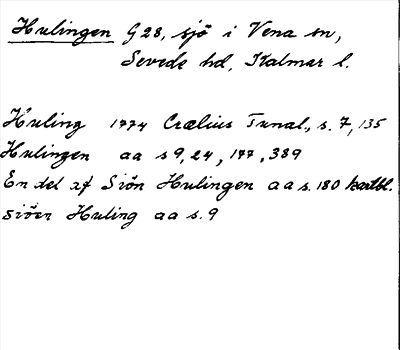 Hulingen G28, sjö i Vena sn,
Sevede hd, Kalmar l.
Huling 1774 Crælius Tunal., s. 7, 135
Hulingen aa s 9, 24, 177, 389
En del af Siön Hulingen aa s. 180 kartbl.
siöen Huling aa s. 9